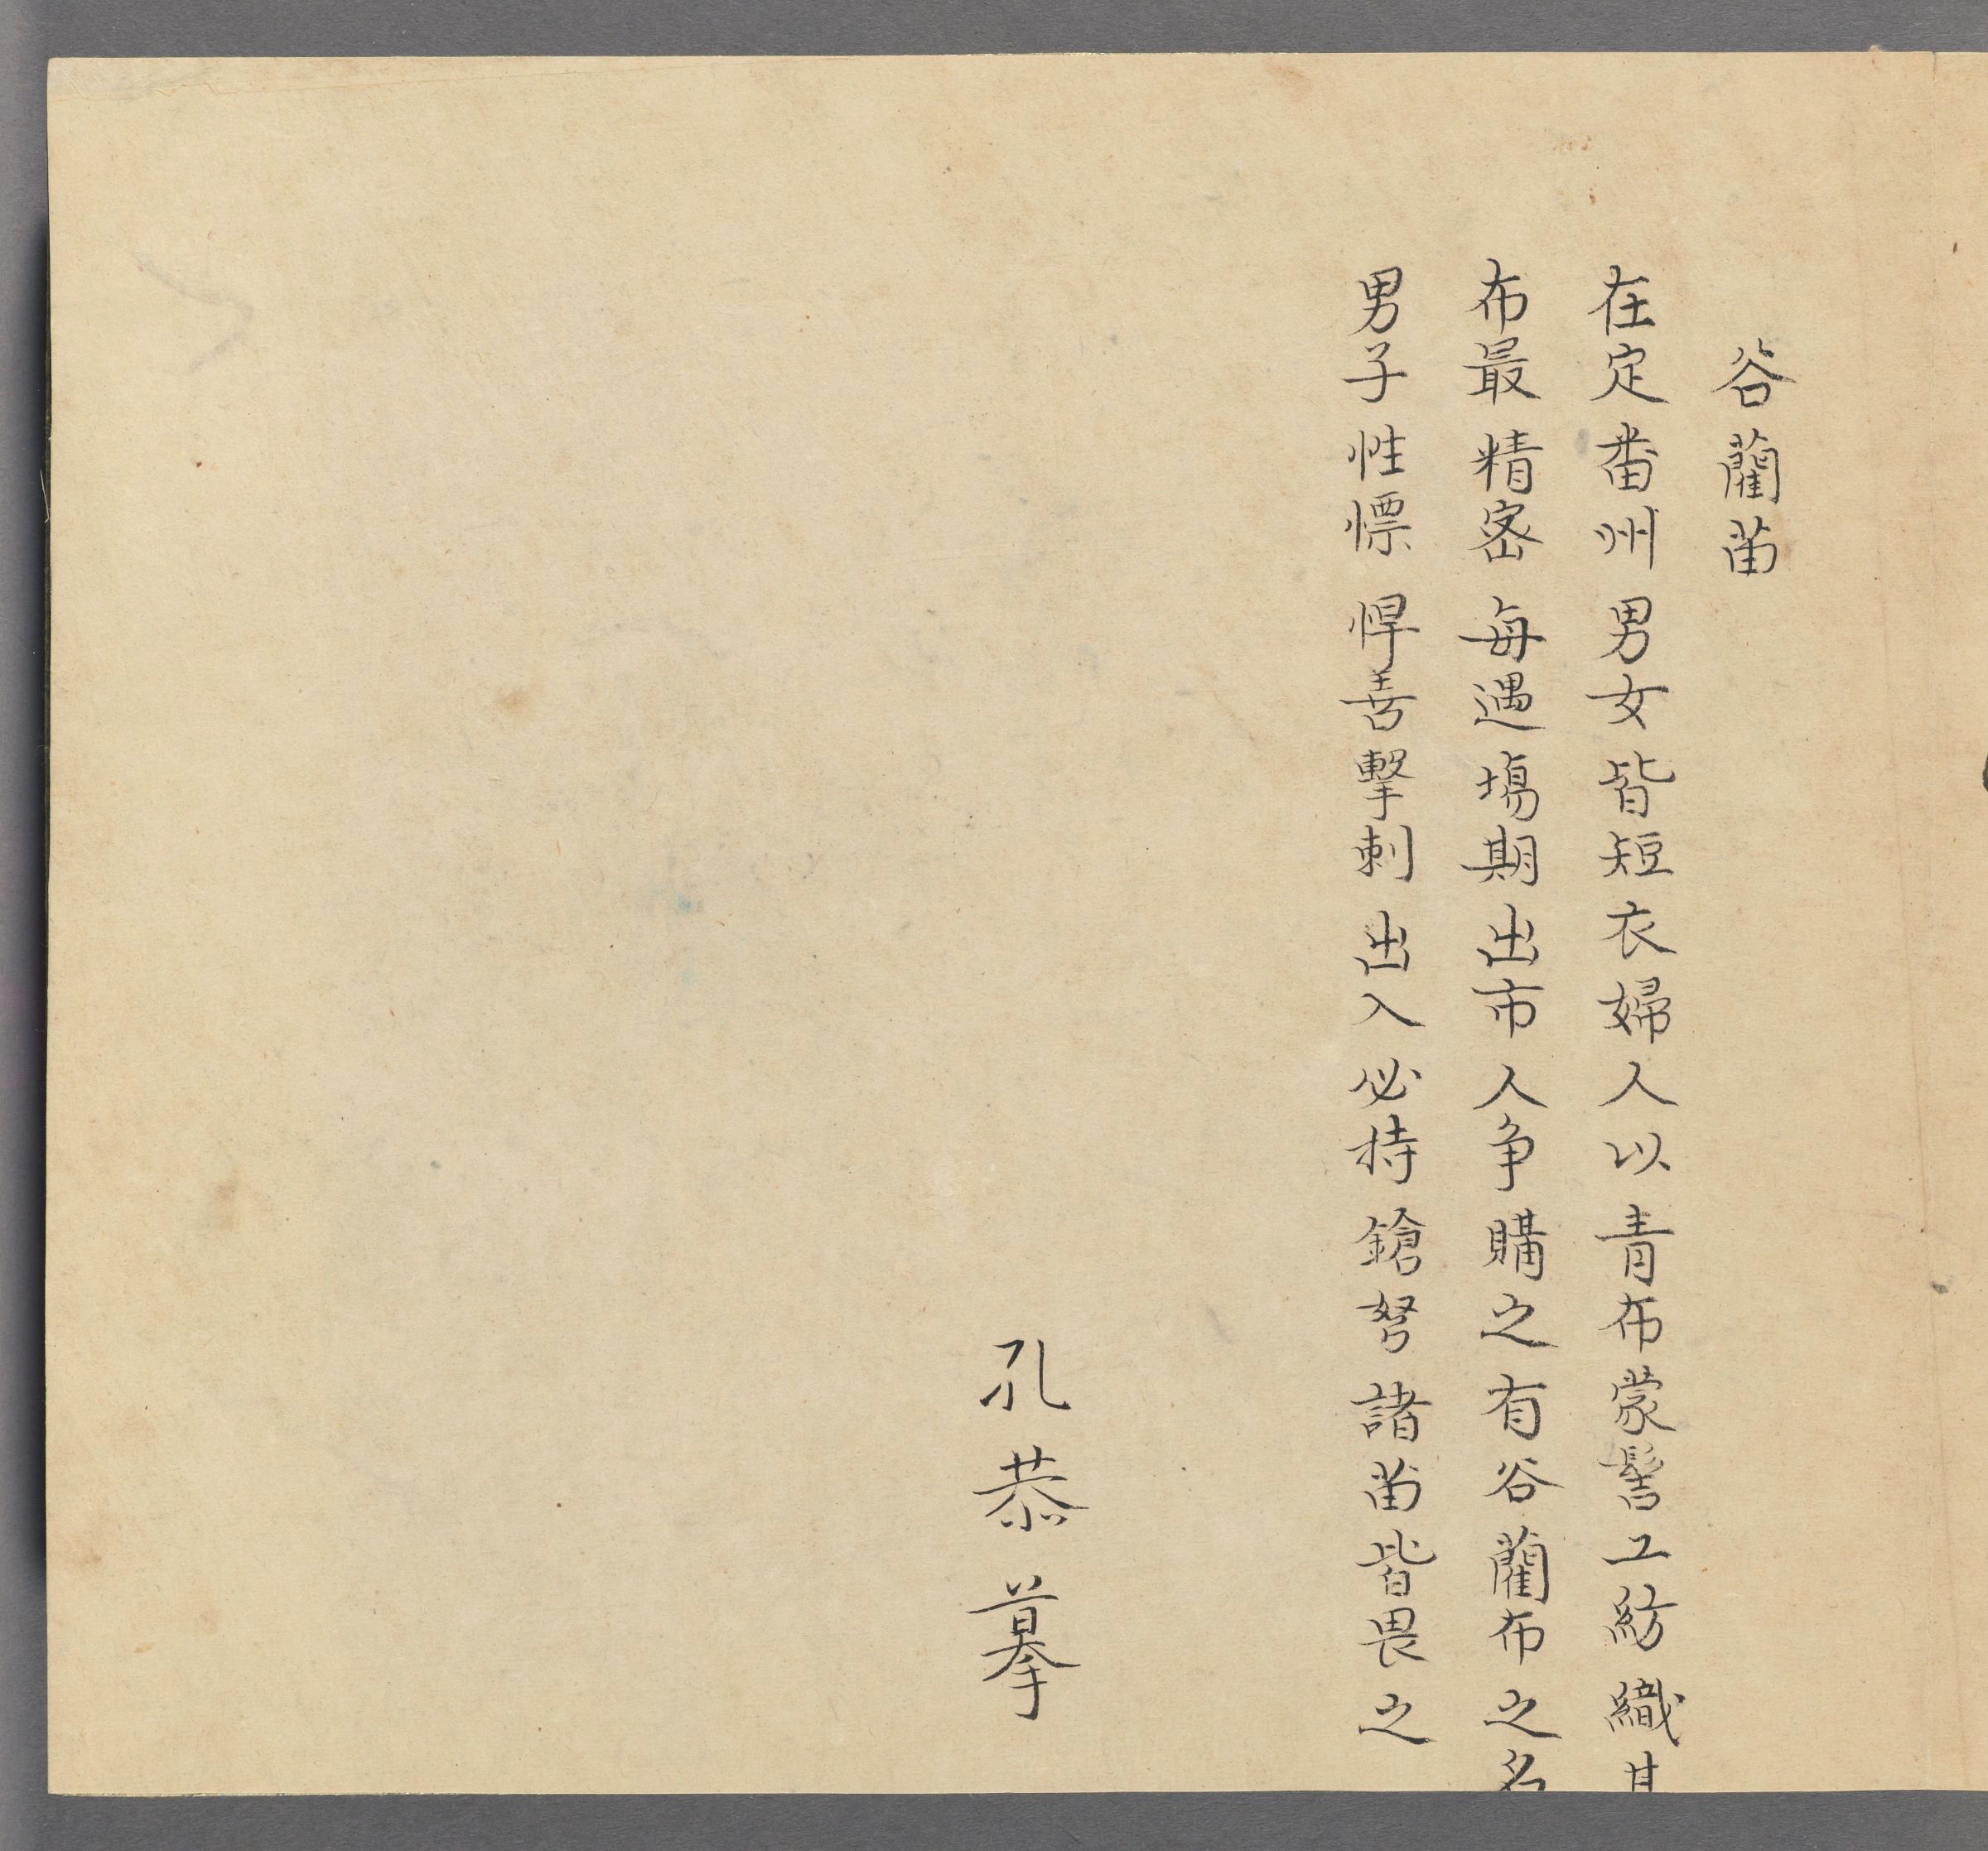 谷藺苗
在定番州男女皆短衣婦人以青布蒙髻工紡織其
布最精密每遇塲期出市人争購之有谷藺布之名
男子性慓悍善擊刺出入必持鎗弩諸苗皆畏之
孔恭摹